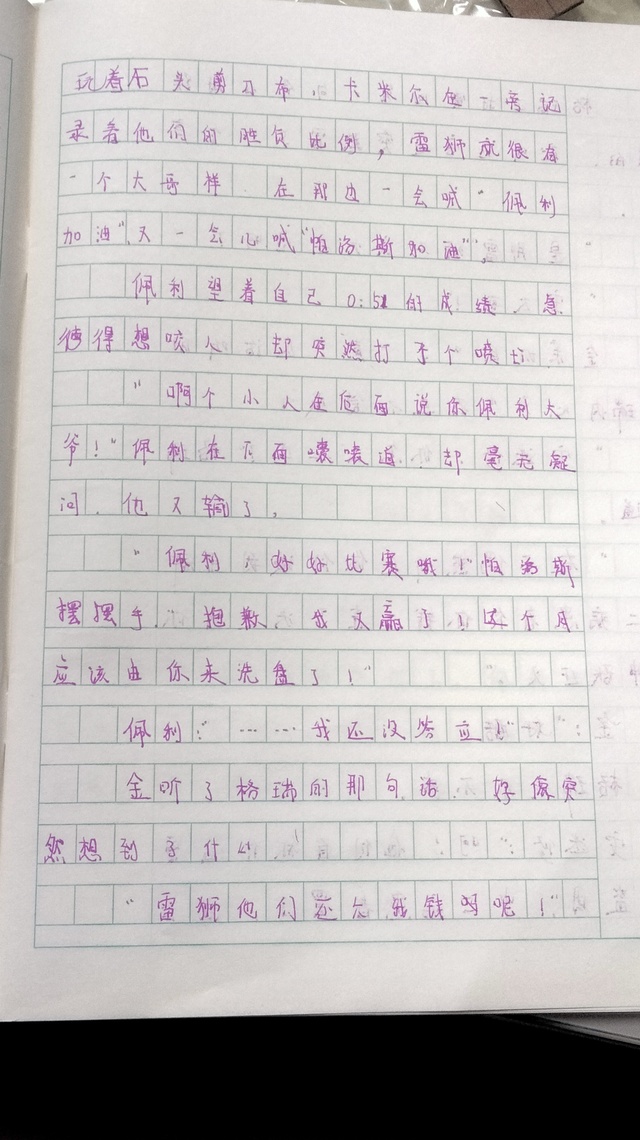 玩着石头剪刀布，卡米尔在一旁记
录着他们的胜负比例，雷狮就很有
一个大哥样 在那边一会喊“佩利
加油”又一会儿喊“帕洛斯加油”，
佩利望着自己0:51的成绩、急
得想咬人 却突然打了个喷嚏
“啊个小人在后面说你佩利大
爷！”佩利在下面嚷嚷道.却毫无疑
问.他又输了，
“佩利，好好比赛哦！”帕洛斯
摆摆手，抱歉 我又赢了！这个月
应该由你来洗盘了！”
佩利：“……我还没答应！”
金听了格瑞的那句话.好像突
然想到了什么！
“雷狮他们还欠我钱吗呢！”